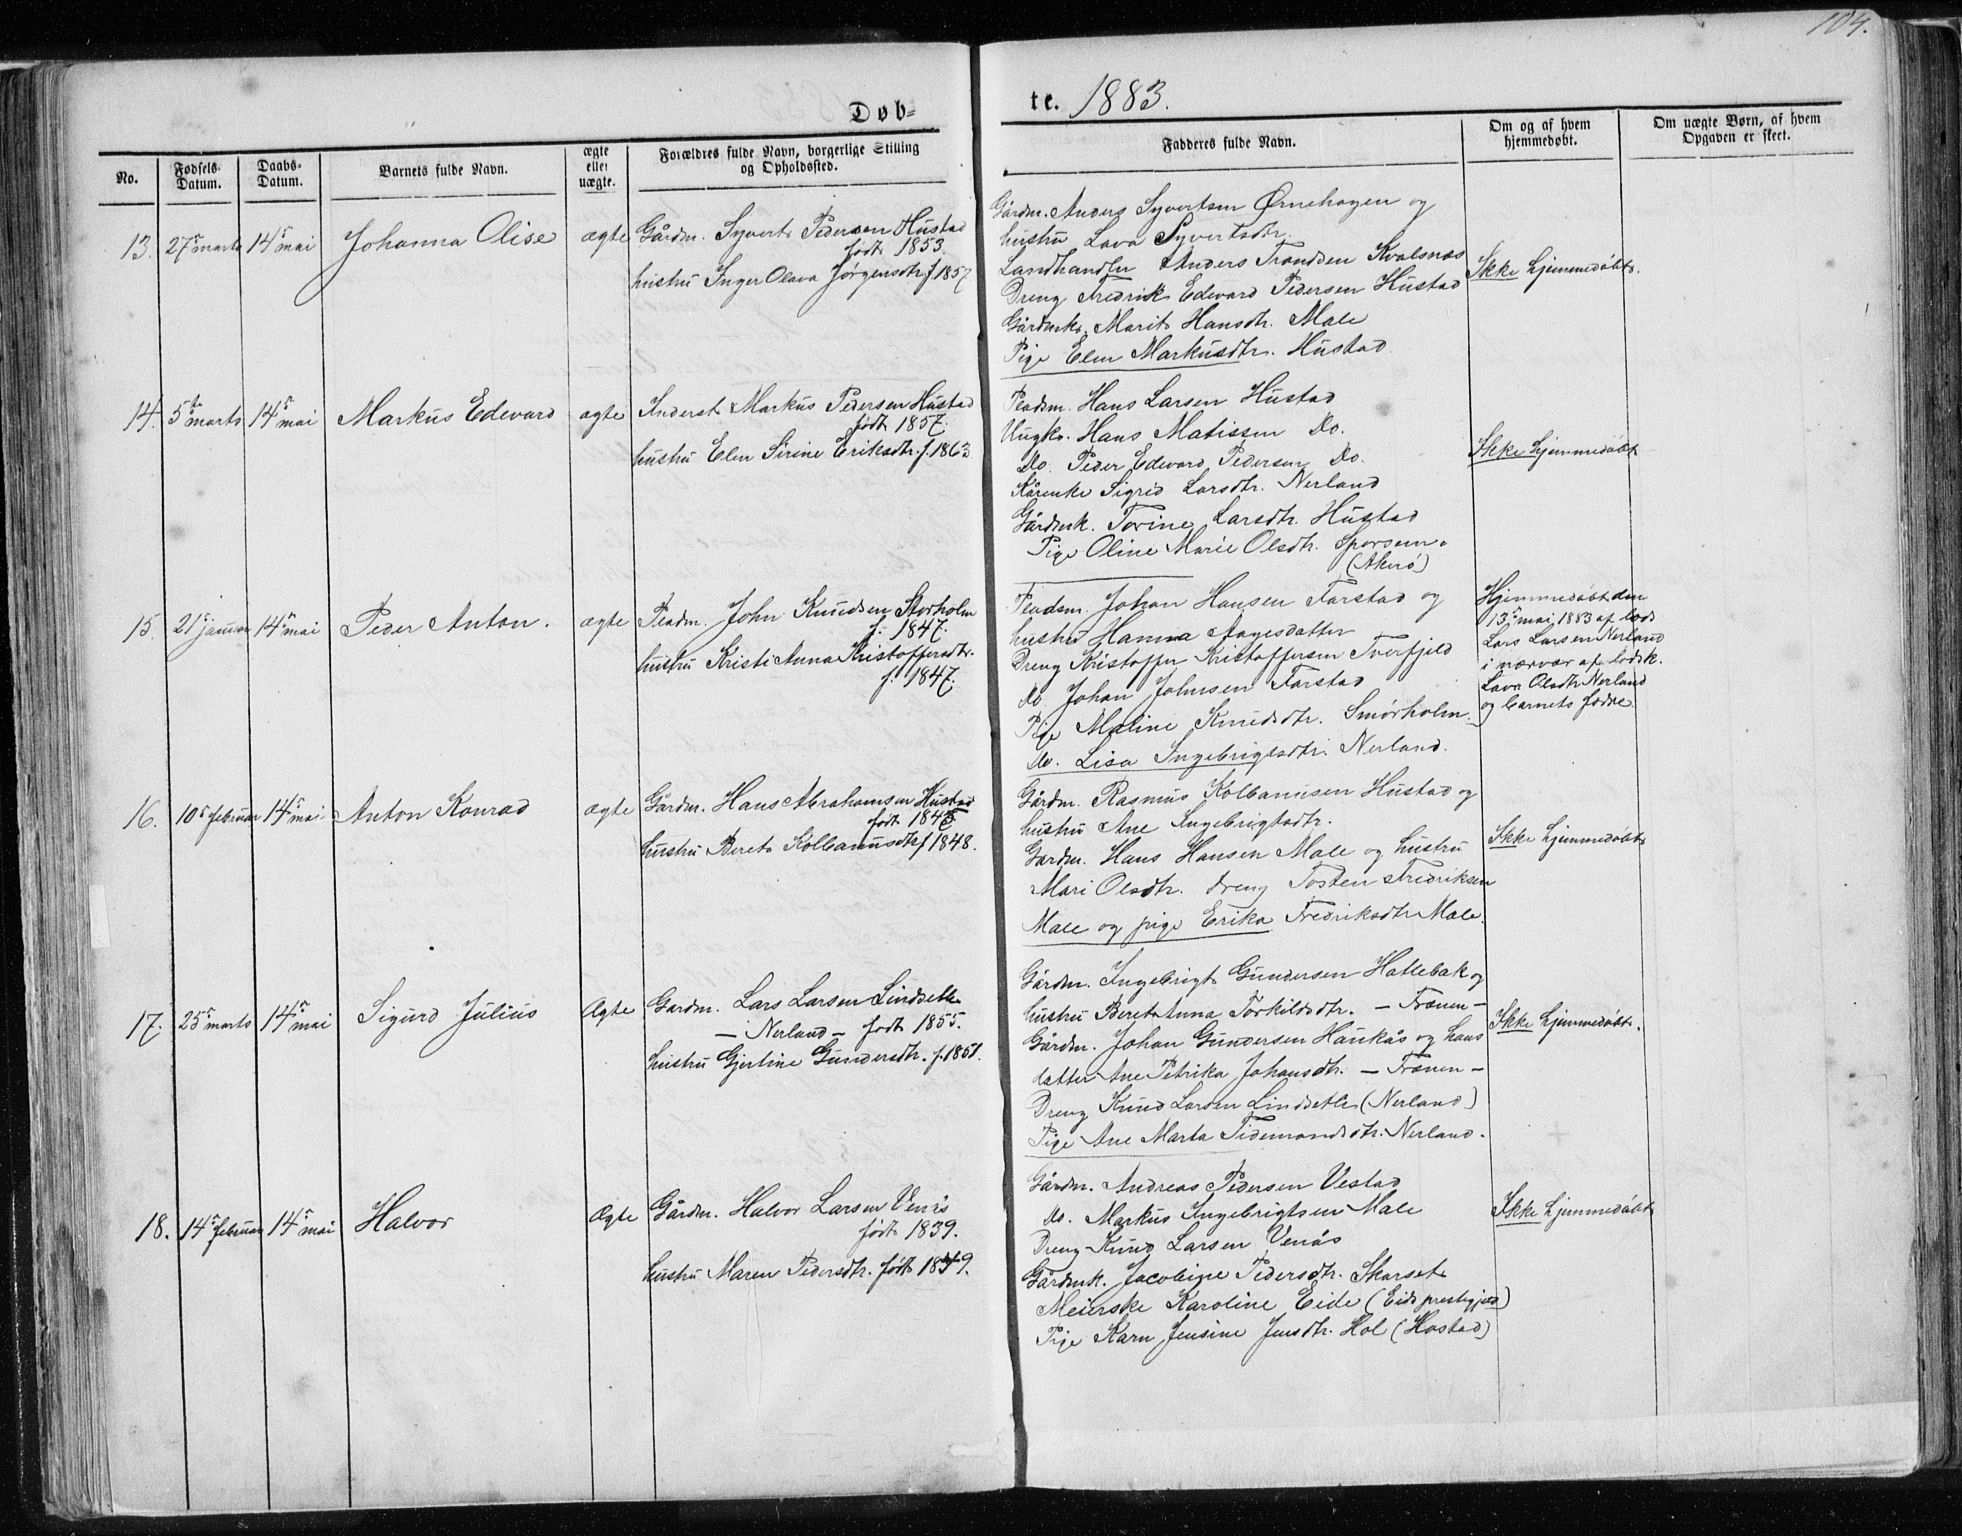 104.
Døb-
te. 1883.
No.
Fødsels-
Datum.
Daabs-
Datum.
Barnets fulde Navn.
ægte
eller
uægte.
Forældres fulde Navn, borgerlige Stilling
og Opholdssted.
Fadderes fulde Navn.
Om og af hvem
hjemmedøbt.
Om uægte Børn, af hvem
Opgaven er skeet.
13. 27 marts 14 mai Johanna Olise ægte
Gårdm. Syvert Pedersen Hustad
født 1853.
hustru Inger Olava Jørgensdtr. f 1857
Gårdm. Anders Syvertsen Ørnehagen og
hustru Lava Syvertsdtr.
Landhandler Anders Trondsen Kvalsnæs
Dreng Fredrik Edevard Pedersen Hustad
Gårdmk. Marit Hansdtr. Male
Pige Elen Markusdtr. Hustad
Ikke hjemmedøbt.
14. 5te marts 14 mai Markus Edevard ægte
Inderst Markus Pedersen Hustad
født 1857.
hustru Elen Sirine Eriksdtr. f. 1863
Pladsm. Hans Larsen Hustad
Ungk. Hans Matissen Do.
Do. Peder Edevard Pedersen Do.
Kårenke Sigrid Larsdtr. Nerland
Gårdmk. Torine Larsdtr. Hustad
Pige Oline Marie Olsdtr. Sporsem.
(Akerø)
Ikke hjemmedøbt
15. 21 januar 14 mai Peder Anton. ægte
Pladm. John Knudsen Storholm
f. 1847.
hustru Kristi Anna Kristoffersdtr.
f. 1847.
Pladsm. Johan Hansen Farstad og
hustru Hanna Aagesdatter
Dreng Kristoffer Kristoffersen Tverfjeld
do. Johan Johnsen Farstad
Pige Maline Knudsdtr. Smørholm.
do. Lisa Ingebrigtsdtr. Nerland.
Hjemmedøbt den
13 mai 1883 af lods
Lars Larsen Nerland
i nærvær af lodsk.
Lava Olsdtr Nerland
og barnets fædre.
16. 10 februar 14 mai Anton Konrad ægte
Gårdm. Hans Abrahamsen Hustad
født 1845
hustru Beret Kolbanusdtr f 1848.
Gårdm. Rasmus Kolbanusen Hustad og
hustru Ane Ingebrigtsdtr.
Gardm. Hans Hansen Male og hustru
Mari Olsdtr. dreng Tosten Fredriksen
Male og pige Erika Fredriksdtr Male.
Ikke hjemmedøbt
17. 25 marts 14 mai Sigurd Julius Ægte
Gardm. Lars Larsen Lindsetli
– Nerland – født 1855.
hustru Gjertine Gundersdtr. f. 1851.
Gårdm. Ingebrigt Gundersen Hatlebak og
hustru Beret Anna Torkildsdtr. – Frænen –
Gårdm. Johan Gundersen Haukås og hans
datter Ane Petrika Johansdtr. – Frænen –
Dreng Knud Larsen Lindsetli (Nerland)
Pige Ane Marta Tidemandsdtr. Nerland.
Ikke hjemmedøbt.
18. 14 februar 14 mai Halvor Ægte
Gårdm. Halvor Larsen Venås
født 1839.
hustru Maren Pedersdtr. født 1849.
Gårdm. Andreas Pedersen Vestad
do. Markus Ingebrigtsen Male
Dreng Knud Larsen Venås
Gårdmk. Jacobine Pedersdtr. Skarset
Meierske Karoline Eide (Eids prestegjæld)
Pige Karn Jensine Jensdtr. Hol (Hostad)
Ikke hjemmedøbt